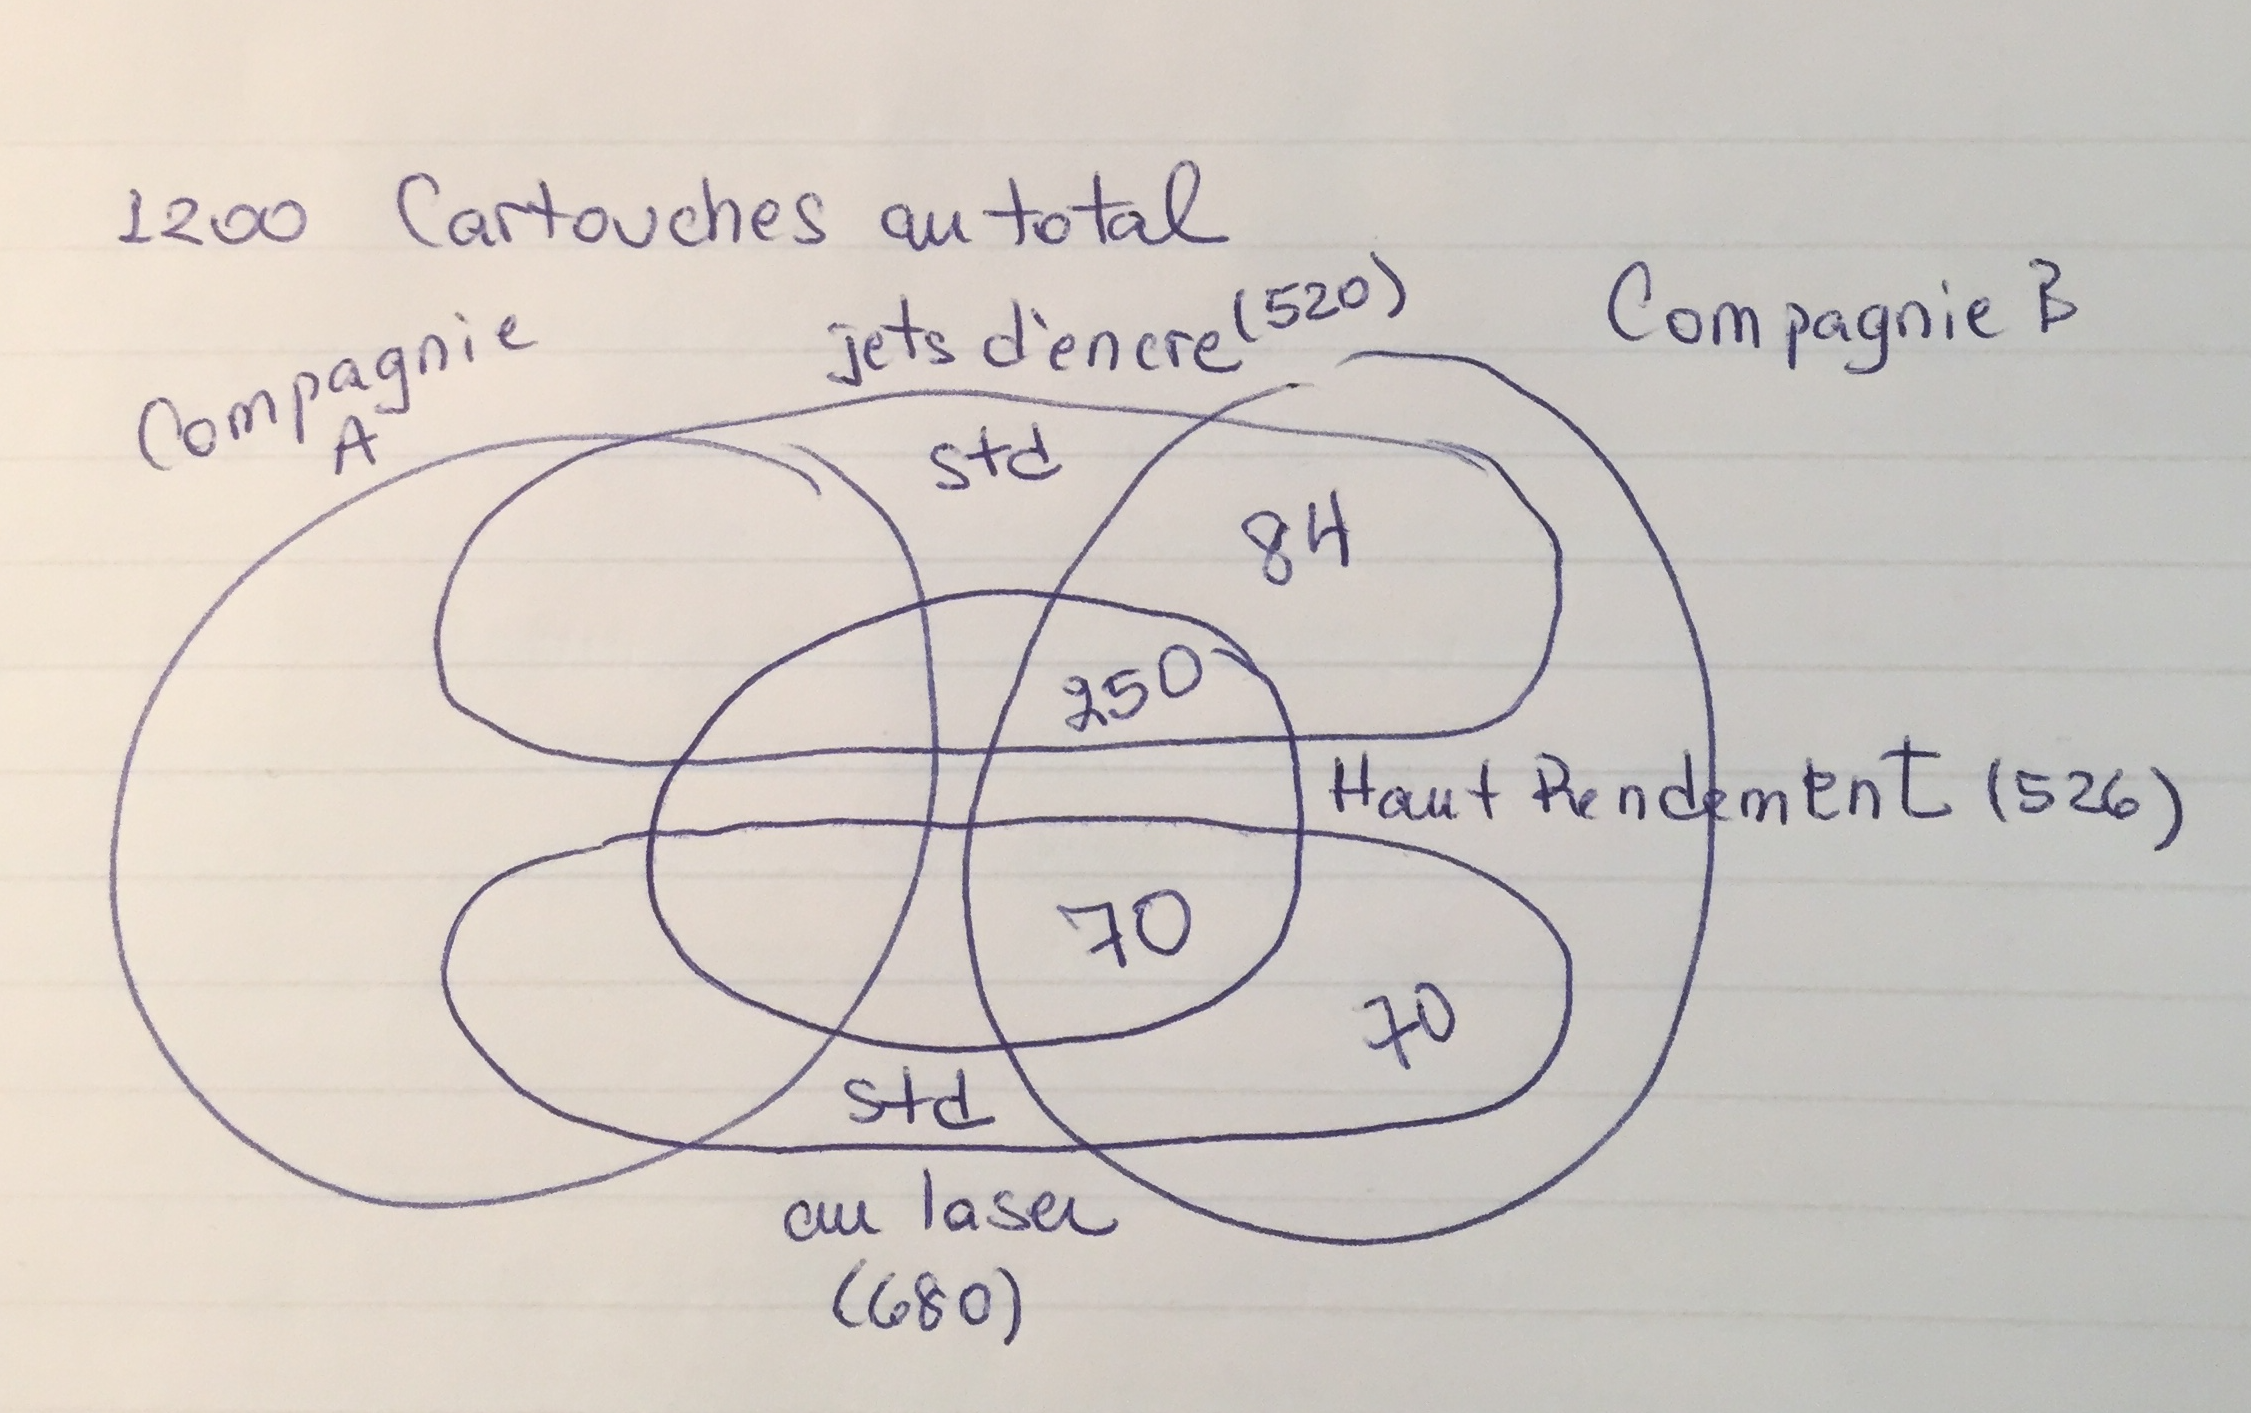 1200 Cartouches au total
Compagnie A
jets d'encre (520)
Compagnie B
std
84
250
Haut Rendement (526)
70
70
std
au laser
(680)